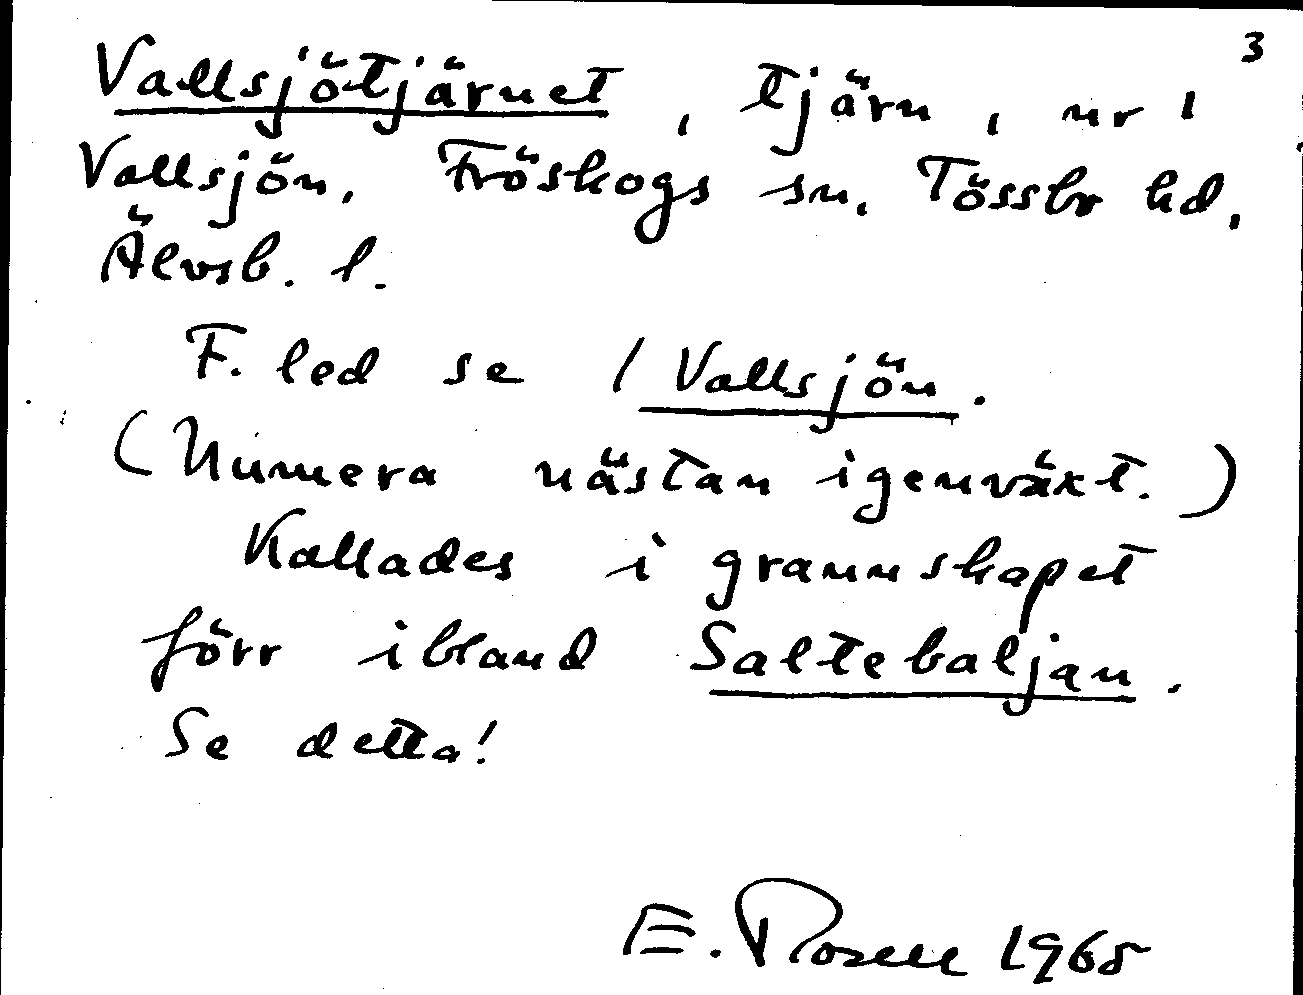 3
Vallsjötjärnet, tjärn, nr 1
Vallsjön, Fröskogs sn. Tössbo hd.
Älvsb. l.
F. led se / Vallsjön.
(Numera nästan igenväxt.)
Kallades i grannskapet
förr ibland Saltebaljan.
Se detta!
E. Rosell 1965